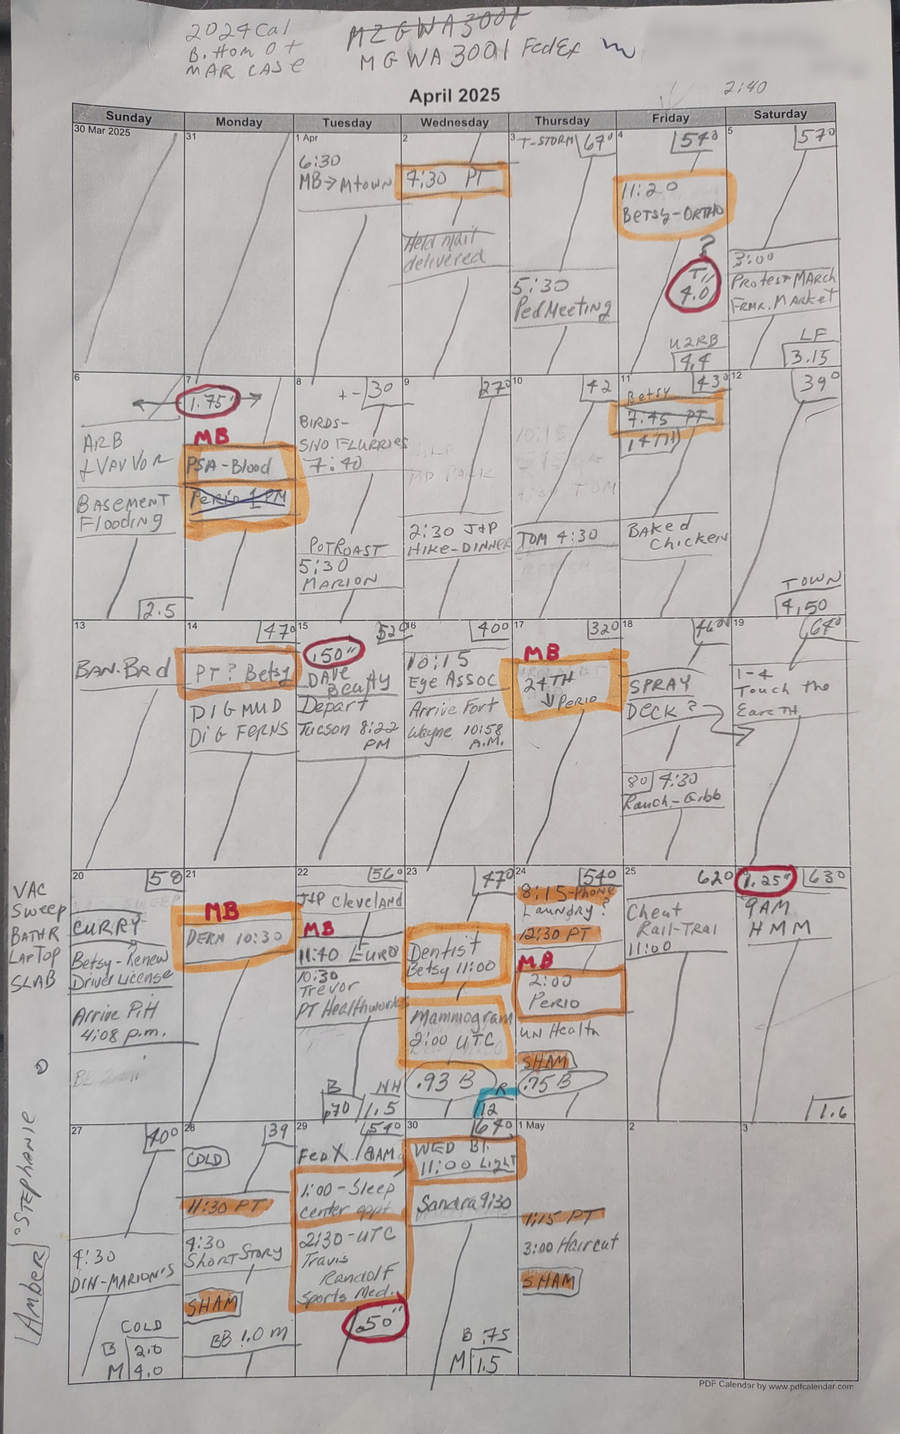 2024 Cal
B. Hom Ot
MAR CASE
MZGWA3001
MGWA3001 FedEx
2:40
April 2025
Sunday
Monday
Tuesday
Wednesday
Thursday
Friday
Saturday
30 Mar 2025
31
1 Apr
6:30
MB→Mtown
2
4:30 PT
Held mail
delivered
3
T-STORM 67°
5:30
Ped Meeting
4
54°
11:20
BETSY-ORTHO
?
4.0
4.4
5
57°
3:00
Protest MArch
FRMR. MArket
LF
3.15
6
ARB
BASEMENT
Flooding
2.5
7
1.75"
MB
PSA-Blood
Perio 1 PM
8
+- 30
BIRDS-
SNO FLURRIES
7:40
POTROAST
5:30
MARION
9
27°
2:30 J+P
HIKE-DINNER
10
42
TOM 4:30
11
43°
Betsy
7:45 PT
14TH
BAKed
Chicken
12
39°
TOWN
4.50
13
BAN.BRd
14
47°
PT? Betsy
DIG MUD
DIG FERNS
15
52°
.50"
DAVE
Beatty
Depart
Tucson 8:22
PM
16
40°
10:15
Eye Assoc
Arrive Fort
Wayne 10:58
A.M.
17
32°
MB
24TH
↓ PERIO
18
46°
SPRAY
DECK?
80 4:30
Ranch-Gibb
19
64°
1-4
Touch the
EarTH
VAC
Sweep
BATHR
LAPTOP
SLAB
20
58
CURRY
Betsy-Renew
Driver License
Arrive PitH
4:08 p.m.
21
MB
DERM 10:30
22
56°
J+P Cleveland
MB
11:40 EURO
10:30
Trevor
PT Healthworks
B
.70
NH
1.5
23
47°
Dentist
Betsy 11:00
Mammogram
2:00 UTC
.93 B
R
12
24
54°
8:15-Phone
Laundry?
12:30 PT
MB
2:00
PERIO
UN Health
SHAM
.75 B
25
62°
Cheat
Rail-Trai
11:00
1.25"
63°
9AM
HMM
1.6
Amber
STEPHANIE
27
40°
4:30
DIN-MARION'S
COLD
B 2.0
M 4.0
28
39
COLD
11:30 PT
4:30
Short Story
SHAM
BB 1.0 m
29
54°
FedX 8AM
1:00-Sleep
center appt
2:30-UTC
Travis
Randolf
Sports Med.
.50"
30
64°
11:00 Light
Sandra 9:30
B .75
M 1.5
1 May
1:15 PT
3:00 Haircut
SHAM
2
3
PDF Calendar by www.pdfcalendar.com